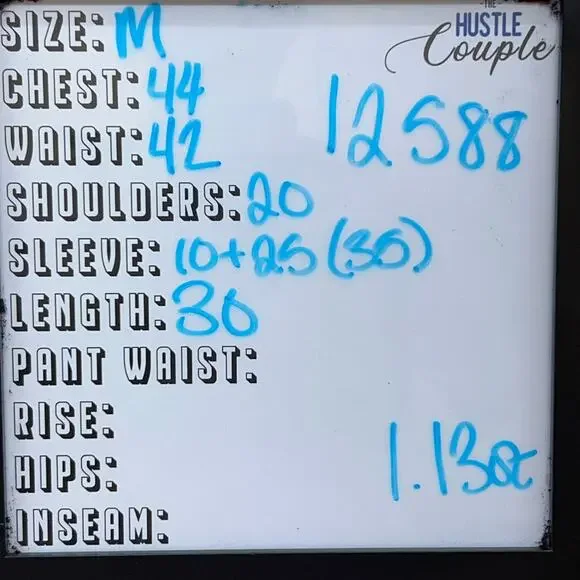 THE
HUSTLE
Couple
SIZE: M
CHEST: 44
WAIST: 42
12588
SHOULDERS: 20
SLEEVE: 10+25 (35)
LENGTH: 30
PANT WAIST:
RISE:
HIPS:
1.13oz
INSEAM: